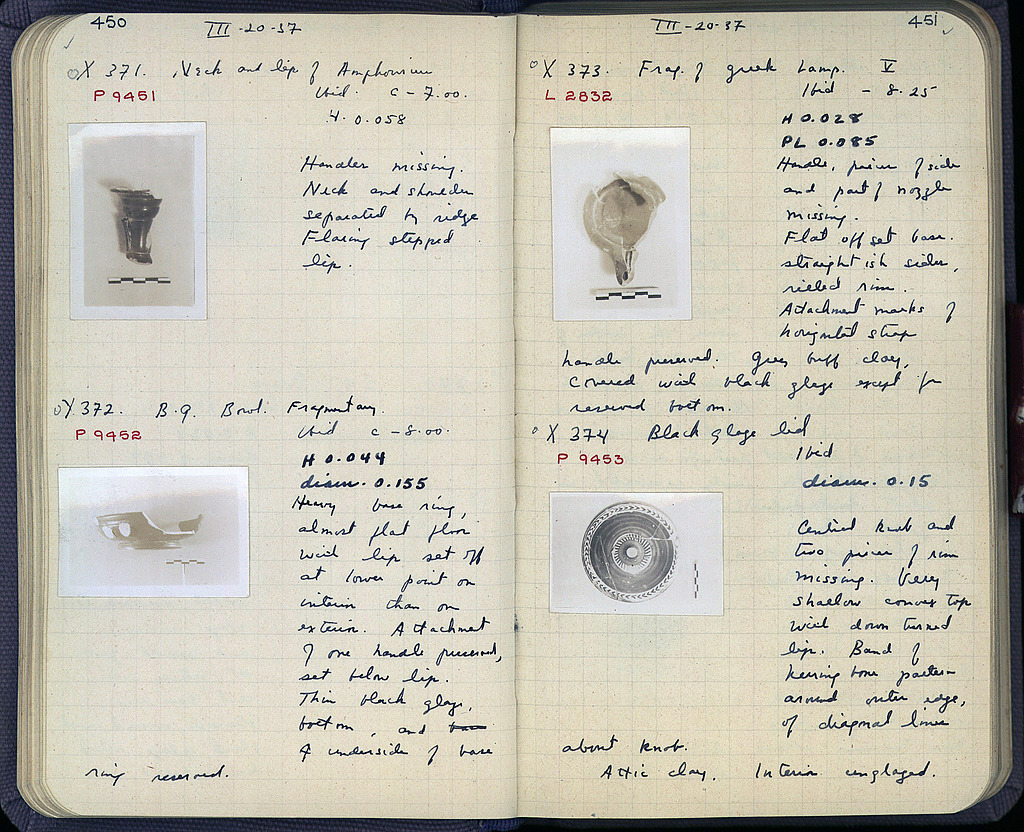 450
III-20-37
X 371. Neck and lip of Amphoriskos
P 9451
Ibid. c - 7.00.
H. 0.058
Handles missing.
Neck and shoulder
separated by ridge
Flaring stepped
lip.
X 372. B.g. Bowl. Fragmentary.
P 9452
Ibid c - 8.00.
H 0.044
diam. 0.155
Heavy base ring,
almost flat floor
with lip set off
at lower point on
interior than on
exterior. Attachment
of one handle preserved,
set below lip.
Thin black glaze,
bottom, and
& underside of base
ring reserved.
451
III-20-37
X 373. Frag. of greek Lamp. V
L 2832
Ibid - 8.25
H 0.028
PL 0.085
Handle, pieces of side
and part of nozzle
missing.
Flat off set base.
straight ish sides,
rilled rim.
Attachment marks of
horizontal strap
handle preserved. Grey buff clay,
covered with black glaze except for
reserved bottom.
X 374 Black glaze lid
P 9453
Ibid
diam. 0.15
Central knob and
two pieces of rim
missing. Very
shallow convex top
with down turned
lip. Band of
herring bone pattern
around outer edge,
of diagonal lines
about knob.
Attic clay. Interior unglazed.